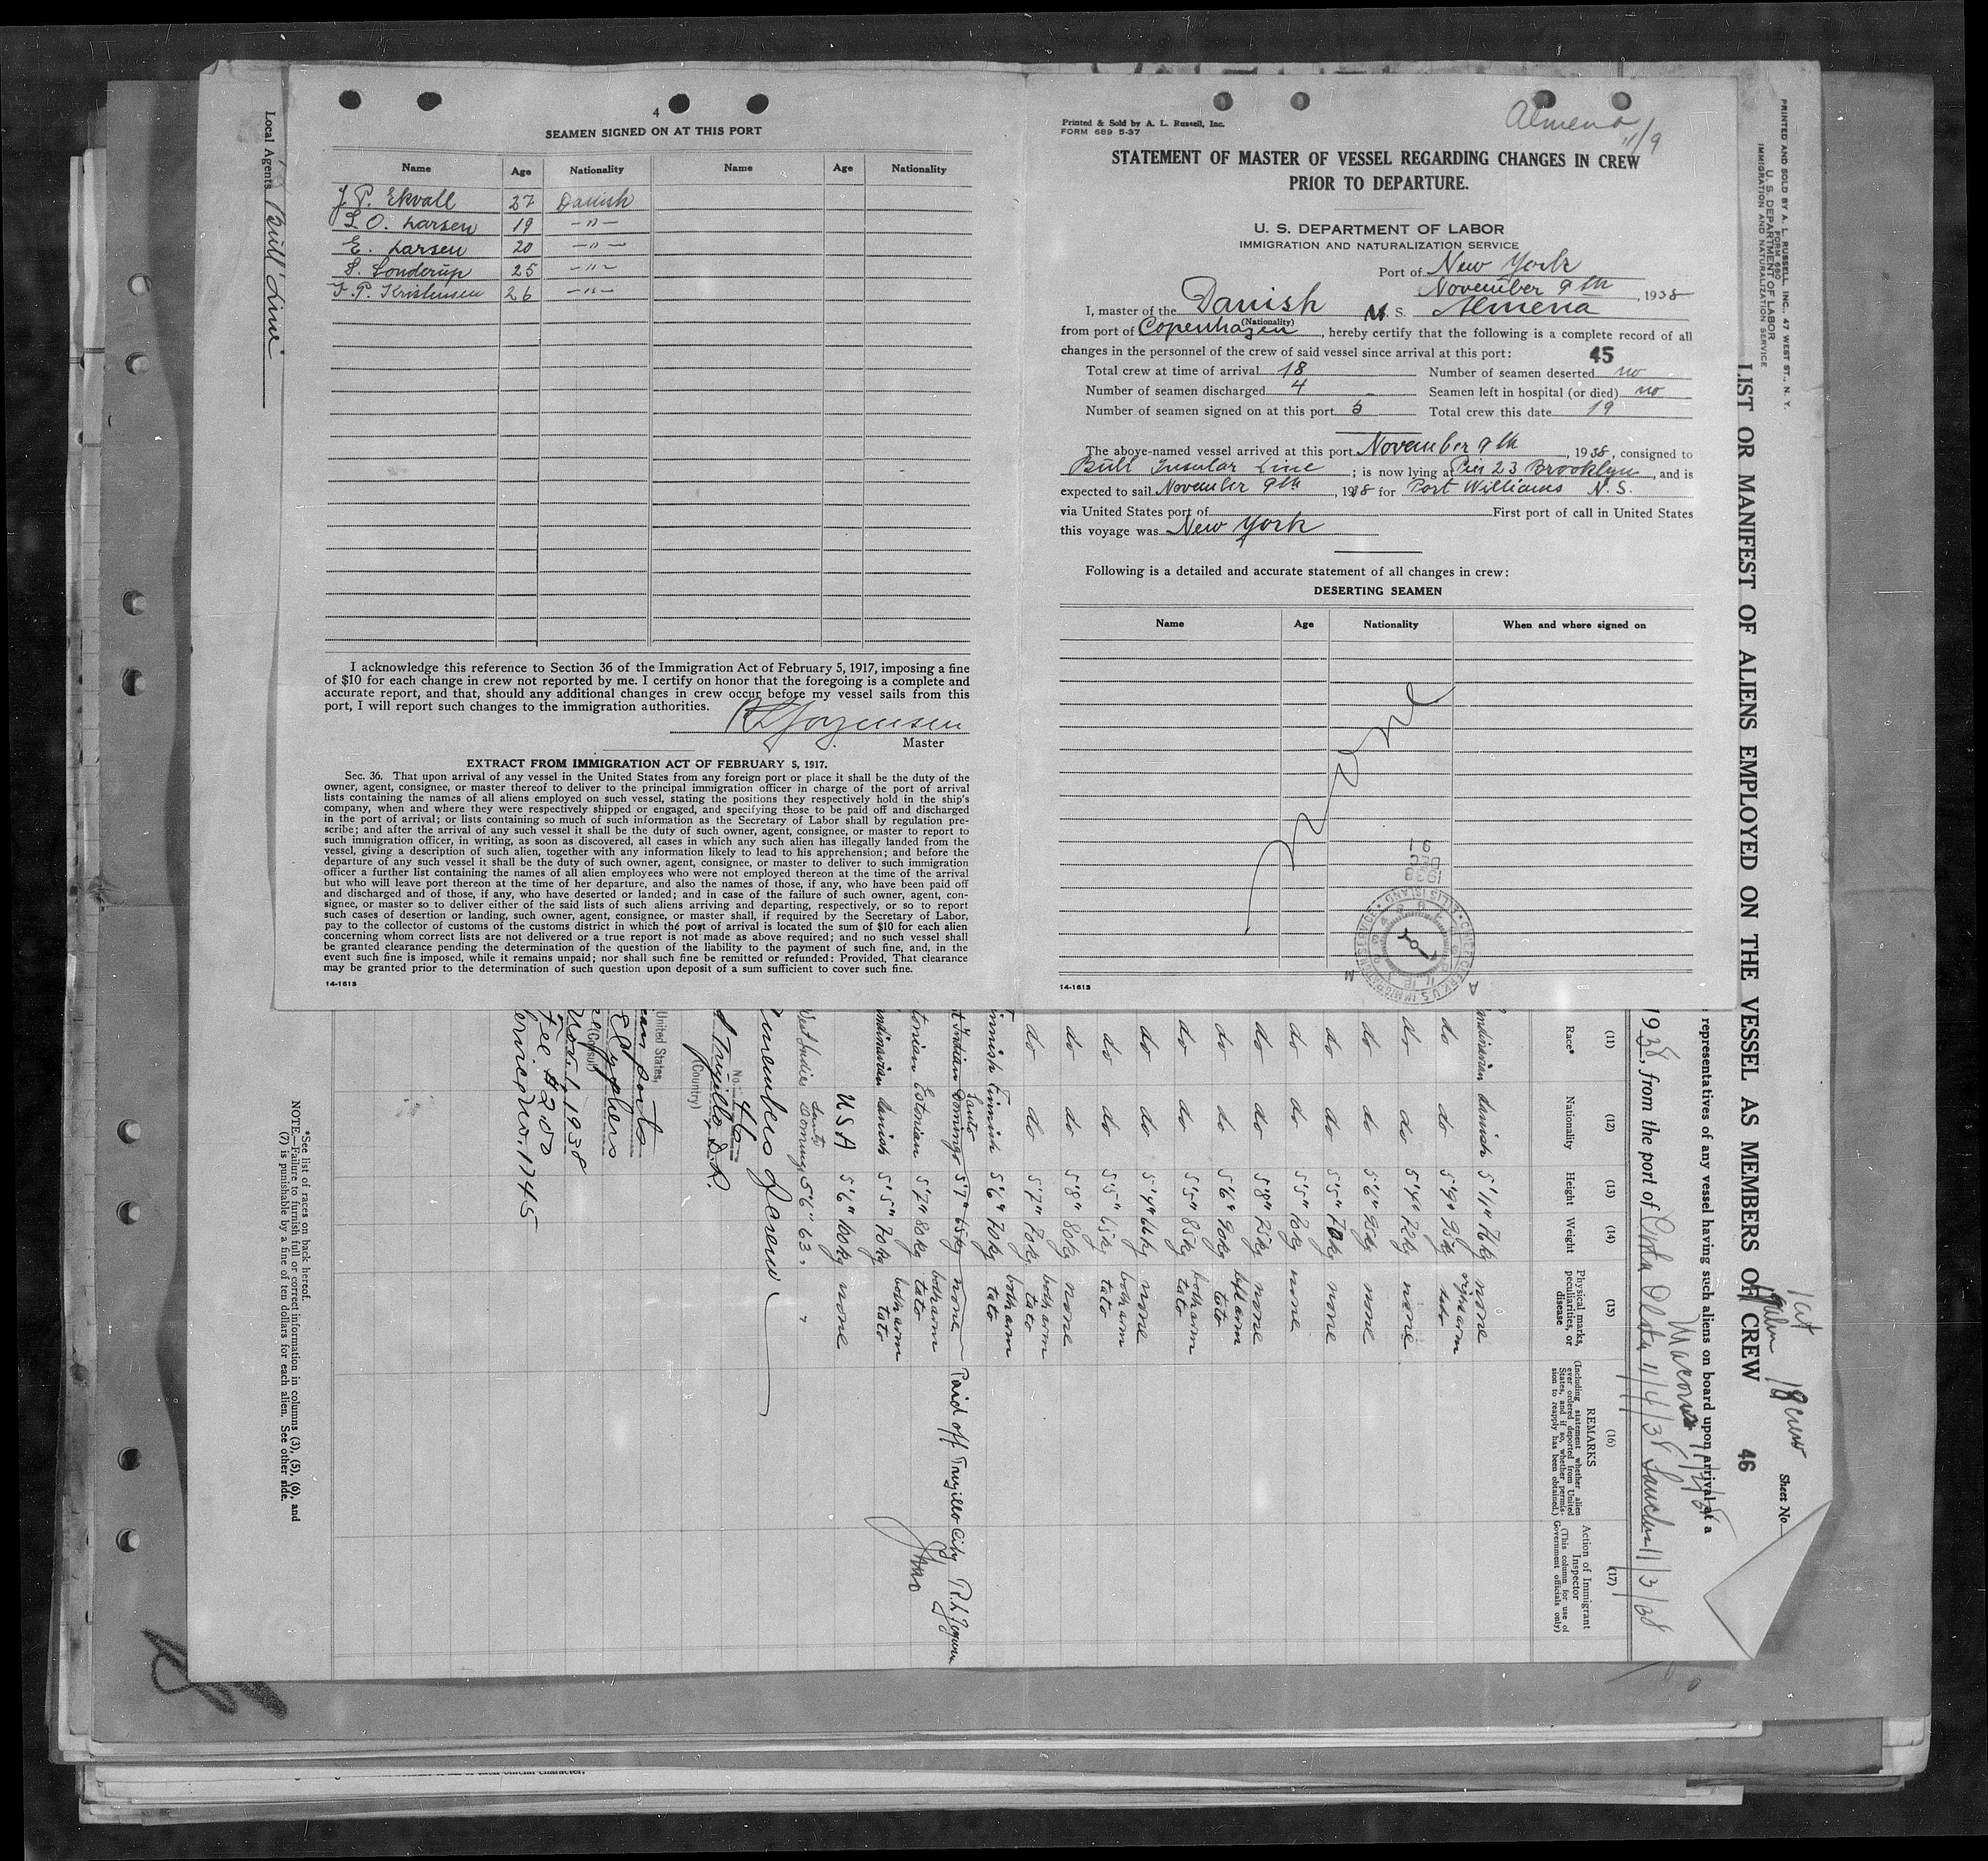 4
SEAMEN SIGNED ON AT THIS PORT
Name Age Nationality Name Age Nationality
J. P. Ekvall 27 Danish
L. O. Larsen 19 —"—
E. Larsen 20 —"—
S. Sonderup 25 —"—
F. P. Kristensen 26 —"—
I acknowledge this reference to Section 36 of the Immigration Act of February 5, 1917, imposing a fine
of $10 for each change in crew not reported by me. I certify on honor that the foregoing is a complete and
accurate report, and that, should any additional changes in crew occur before my vessel sails from this
port, I will report such changes to the immigration authorities.
Jorgensen
Master
EXTRACT FROM IMMIGRATION ACT OF FEBRUARY 5, 1917.
Sec. 36. That upon arrival of any vessel in the United States from any foreign port or place it shall be the duty of the
owner, agent, consignee, or master thereof to deliver to the principal immigration officer in charge of the port of arrival
lists containing the names of all aliens employed on such vessel, stating the positions they respectively hold in the ship's
company, when and where they were respectively shipped or engaged, and specifying those to be paid off and discharged
in the port of arrival; or lists containing so much of such information as the Secretary of Labor shall by regulation pre-
scribe; and after the arrival of any such vessel it shall be the duty of such owner, agent, consignee, or master to report to
such immigration officer, in writing, as soon as discovered, all cases in which any such alien has illegally landed from the
vessel, giving a description of such alien, together with any information likely to lead to his apprehension; and before the
departure of any such vessel it shall be the duty of such owner, agent, consignee, or master to deliver to such immigration
officer a further list containing the names of all alien employees who were not employed thereon at the time of the arrival
but who will leave port thereon at the time of her departure, and also the names of those, if any, who have been paid off
and discharged and of those, if any, who have deserted or landed; and in case of the failure of such owner, agent, con-
signee, or master so to deliver either of the said lists of such aliens arriving and departing, respectively, or so to report
such cases of desertion or landing, such owner, agent, consignee, or master shall, if required by the Secretary of Labor,
pay to the collector of customs of the customs district in which the port of arrival is located the sum of $10 for each alien
concerning whom correct lists are not delivered or a true report is not made as above required; and no such vessel shall
be granted clearance pending the determination of the question of the liability to the payment of such fine, and, in the
event such fine is imposed, while it remains unpaid; nor shall such fine be remitted or refunded: Provided, That clearance
may be granted prior to the determination of such question upon deposit of a sum sufficient to cover such fine.
14-1613
Local Agents Bull Line
Printed & Sold by A. L. Russell, Inc.
FORM 689 5-37
Almena
11/9
STATEMENT OF MASTER OF VESSEL REGARDING CHANGES IN CREW
PRIOR TO DEPARTURE.
U. S. DEPARTMENT OF LABOR
IMMIGRATION AND NATURALIZATION SERVICE
Port of New York
November 9th, 1938
I, master of the Danish M. S. Almena
(Nationality)
from port of Copenhagen, hereby certify that the following is a complete record of all
changes in the personnel of the crew of said vessel since arrival at this port:
45
Total crew at time of arrival 18 Number of seamen deserted no
Number of seamen discharged 4 Seamen left in hospital (or died) no
Number of seamen signed on at this port 5 Total crew this date 19
The above-named vessel arrived at this port November 9th, 1938, consigned to
Bull Insular Line; is now lying at Pier 23 Brooklyn, and is
expected to sail November 9th, 1938 for Port Williams N.S.
via United States port of First port of call in United States
this voyage was New York
Following is a detailed and accurate statement of all changes in crew:
DESERTING SEAMEN
Name Age Nationality When and where signed on
None
1938
DEC
14-1613
PRINTED AND SOLD BY A. L. RUSSELL, INC., 47 WEST ST., N. Y.
FORM 680
U. S. DEPARTMENT OF LABOR
IMMIGRATION AND NATURALIZATION SERVICE
Sheet No.
18 crew
LIST OR MANIFEST OF ALIENS EMPLOYED ON THE VESSEL AS MEMBERS OF CREW 46
representatives of any vessel having such aliens on board upon arrival at a
1938, from the port of
(11) (12) (13) (14) (15) (16) (17)
Race* Nationality Height Weight Physical marks, peculiarities, or disease
REMARKS
(Including statement whether alien ever ordered deported from United States, and if so, whether permission to reapply has been obtained.)
Action of Immigrant Inspector
(This column for use of Government officials only)
danish 5'11" 76kg none
do do 5'9" 95kg
do do 5'4" 72kg none
do do 5'6" 95kg none
do do 5'5" 70kg none
do do 5'5" 70kg none
do do 5'8" 75kg none
do do 5'6" 90kg left arm tato
do do 5'5" 85kg both arm tato
do do 5'4" 66kg none
do do 5'5" 65kg both arm tato
do do 5'8" 80kg none
do do 5'7" 70kg both arm tato
Finnish Finnish 5'6" 70kg both arm tato
Indian Santo Domingo 5'7" 65kg none Paid off Trujillo City
Estonian 5'7" 80kg both arm tato
danish 5'5" 70kg both arm tato
USA 5'6" 100kg none
West Indies Santo Domingo 5'6" 63
members of crew
No. 46
Trujillo, D.R.
(Country)
United States,
(Consul)
Nov. 1, 1938
Fee $2.00
Service No. 1745
*See list of races on back hereof.
NOTE.—Failure to furnish full or correct information in columns (3), (5), (6), and
(7) is punishable by a fine of ten dollars for each alien. See other side.